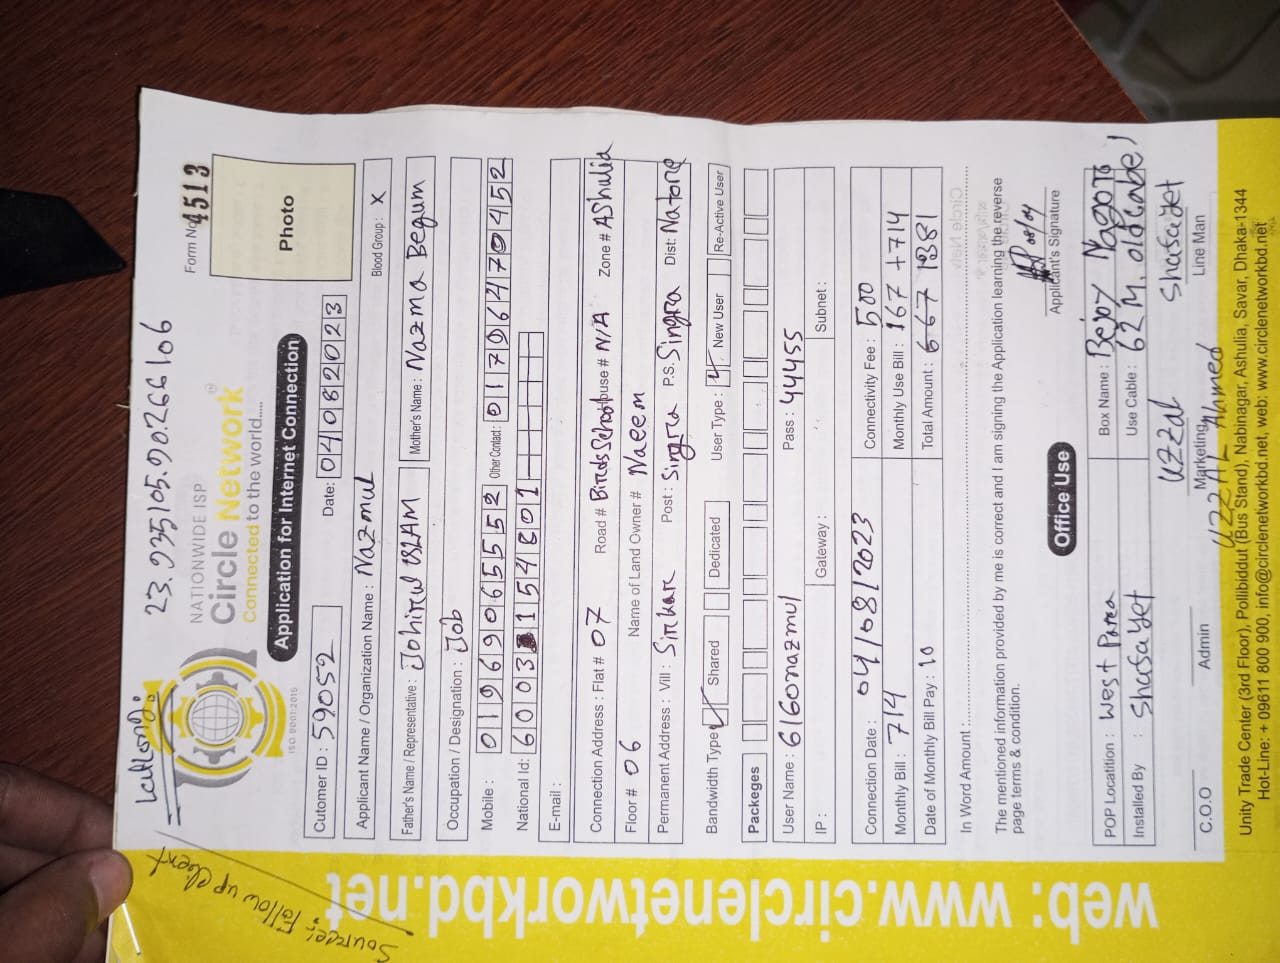 LatLong:
23.935105,90.266106
Form No 4513
NATIONWIDE ISP
Circle Network
Connected to the world.....
ISO 9001:2015
Photo
Application for Internet Connection
Cutomer ID : 59052 Date: 04082023
Applicant Name / Organization Name : Nazmul Blood Group : X
Father's Name / Representative : Johirul ISLAM Mother's Name : Nazma Begum
Occupation / Designation : Job
Mobile : 01969065552 Other Contact: 01796470452
National Id: 6003154801
E-mail :
Connection Address : Flat # 07 Road # Birds School House # N/A Zone # AShulia
Floor # 06 Name of Land Owner # Naeem
Permanent Address : Vill : Sirkar Post : Singra P.S. Singra Dist: Natore
Bandwidth Type Shared Dedicated User Type : New User Re-Active User
Packeges
User Name : 6160nazmul Pass : 44455
IP : Gateway : Subnet :
Connection Date : 04/08/2023 Connectivity Fee : 500
Monthly Bill : 714 Monthly Use Bill : 167 +714
Date of Monthly Bill Pay : 10 Total Amount : 667 1381
In Word Amount :
The mentioned information provided by me is correct and I am signing the Application learning the reverse
page terms & condition.
08/04
Applicant's Signature
Office Use
POP Locatition : West Parea Box Name : Bejoy Nagore
Installed By : ShaSaYet Use Cable : 62 M. old cabel
Uzzal ShaSaYet
C.O.O Admin Marketing Line Man
UZZAL Ahmed
Unity Trade Center (3rd Floor), Pollibiddut (Bus Stand), Nabinagar, Ashulia, Savar, Dhaka-1344
Hot-Line: + 09611 800 900, info@circlenetworkbd.net, web: www.circlenetworkbd.net
web: www.circlenetworkbd.net
Source: Follow up client